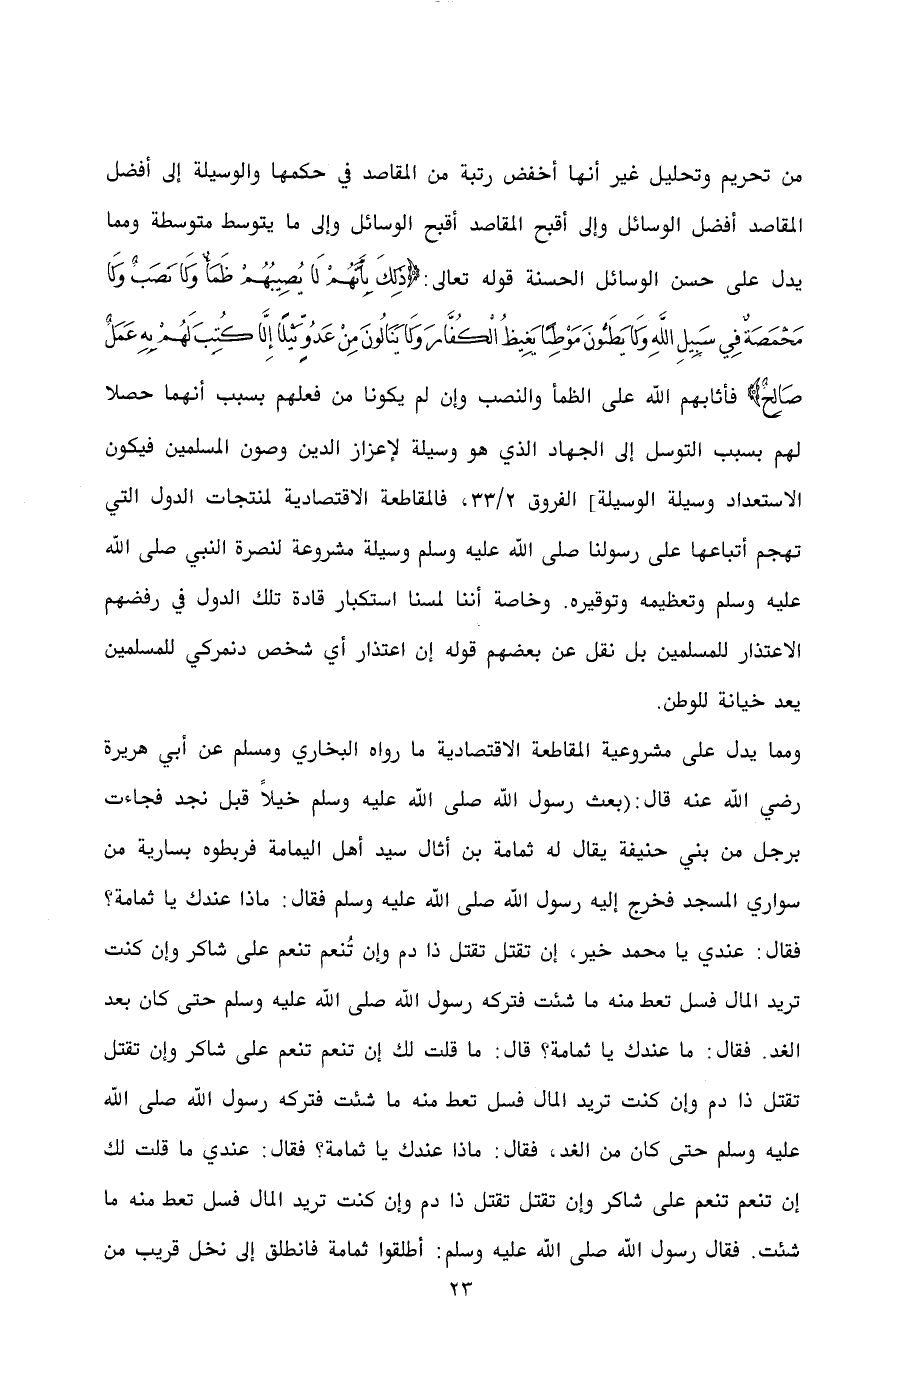 من تحريم وتحليل غير أنها أخفض رتبة من المقاصد في حكمها والوسيلة إلى أفضل
المقاصد أفضل الوسائل وإلى أقبح المقاصد أقبح الوسائل وإلى ما يتوسط متوسطة ومما
يدل على حسن الوسائل الحسنة قوله تعالى: ﴿ذَلِكَ بِأَنَّهُمْ لَا يُصِيبُهُمْ ظَمَأٌ وَلَا نَصَبٌ وَلَا
مَخْمَصَةٌ فِي سَبِيلِ اللَّهِ وَلَا يَطَئُونَ مَوْطِئًا يَغِيظُ الْكُفَّارَ وَلَا يَنَالُونَ مِنْ عَدُوٍّ نَّيْلًا إِلَّا كُتِبَ لَهُمْ بِهِ عَمَلٌ
صَالِحٌ﴾ فأثابهم الله على الظمأ والنصب وإن لم يكونا من فعلهم بسبب أنهما حصلا
لهم بسبب التوسل إلى الجهاد الذي هو وسيلة لإعزاز الدين وصون المسلمين فيكون
الاستعداد وسيلة الوسيلة] الفروق ٣٣/٢، فالمقاطعة الاقتصادية لمنتجات الدول التي
تهجم أتباعها على رسولنا صلى الله عليه وسلم وسيلة مشروعة لنصرة النبي صلى الله
عليه وسلم وتعظيمه وتوقيره. وخاصة أننا لمسنا استكبار قادة تلك الدول في رفضهم
الاعتذار للمسلمين بل نقل عن بعضهم قوله إن اعتذار أي شخص دنمركي للمسلمين
يعد خيانة للوطن.
ومما يدل على مشروعية المقاطعة الاقتصادية ما رواه البخاري ومسلم عن أبي هريرة
رضي الله عنه قال:(بعث رسول الله صلى الله عليه وسلم خيلاً قبل نجد فجاءت
برجل من بني حنيفة يقال له ثمامة بن أثال سيد أهل اليمامة فربطوه بسارية من
سواري المسجد فخرج إليه رسول الله صلى الله عليه وسلم فقال: ماذا عندك يا ثمامة؟
فقال: عندي يا محمد خير، إن تقتل تقتل ذا دم وإن تُنعم تنعم على شاكر وإن كنت
تريد المال فسل تعط منه ما شئت فتركه رسول الله صلى الله عليه وسلم حتى كان بعد
الغد. فقال: ما عندك يا ثمامة؟ قال: ما قلت لك إن تنعم تنعم على شاكر وإن تقتل
تقتل ذا دم وإن كنت تريد المال فسل تعط منه ما شئت فتركه رسول الله صلى الله
عليه وسلم حتى كان من الغد، فقال: ماذا عندك يا ثمامة؟ فقال: عندي ما قلت لك
إن تنعم تنعم على شاكر وإن تقتل تقتل ذا دم وإن كنت تريد المال فسل تعط منه ما
شئت. فقال رسول الله صلى الله عليه وسلم: أطلقوا ثمامة فانطلق إلى نخل قريب من
٢٣